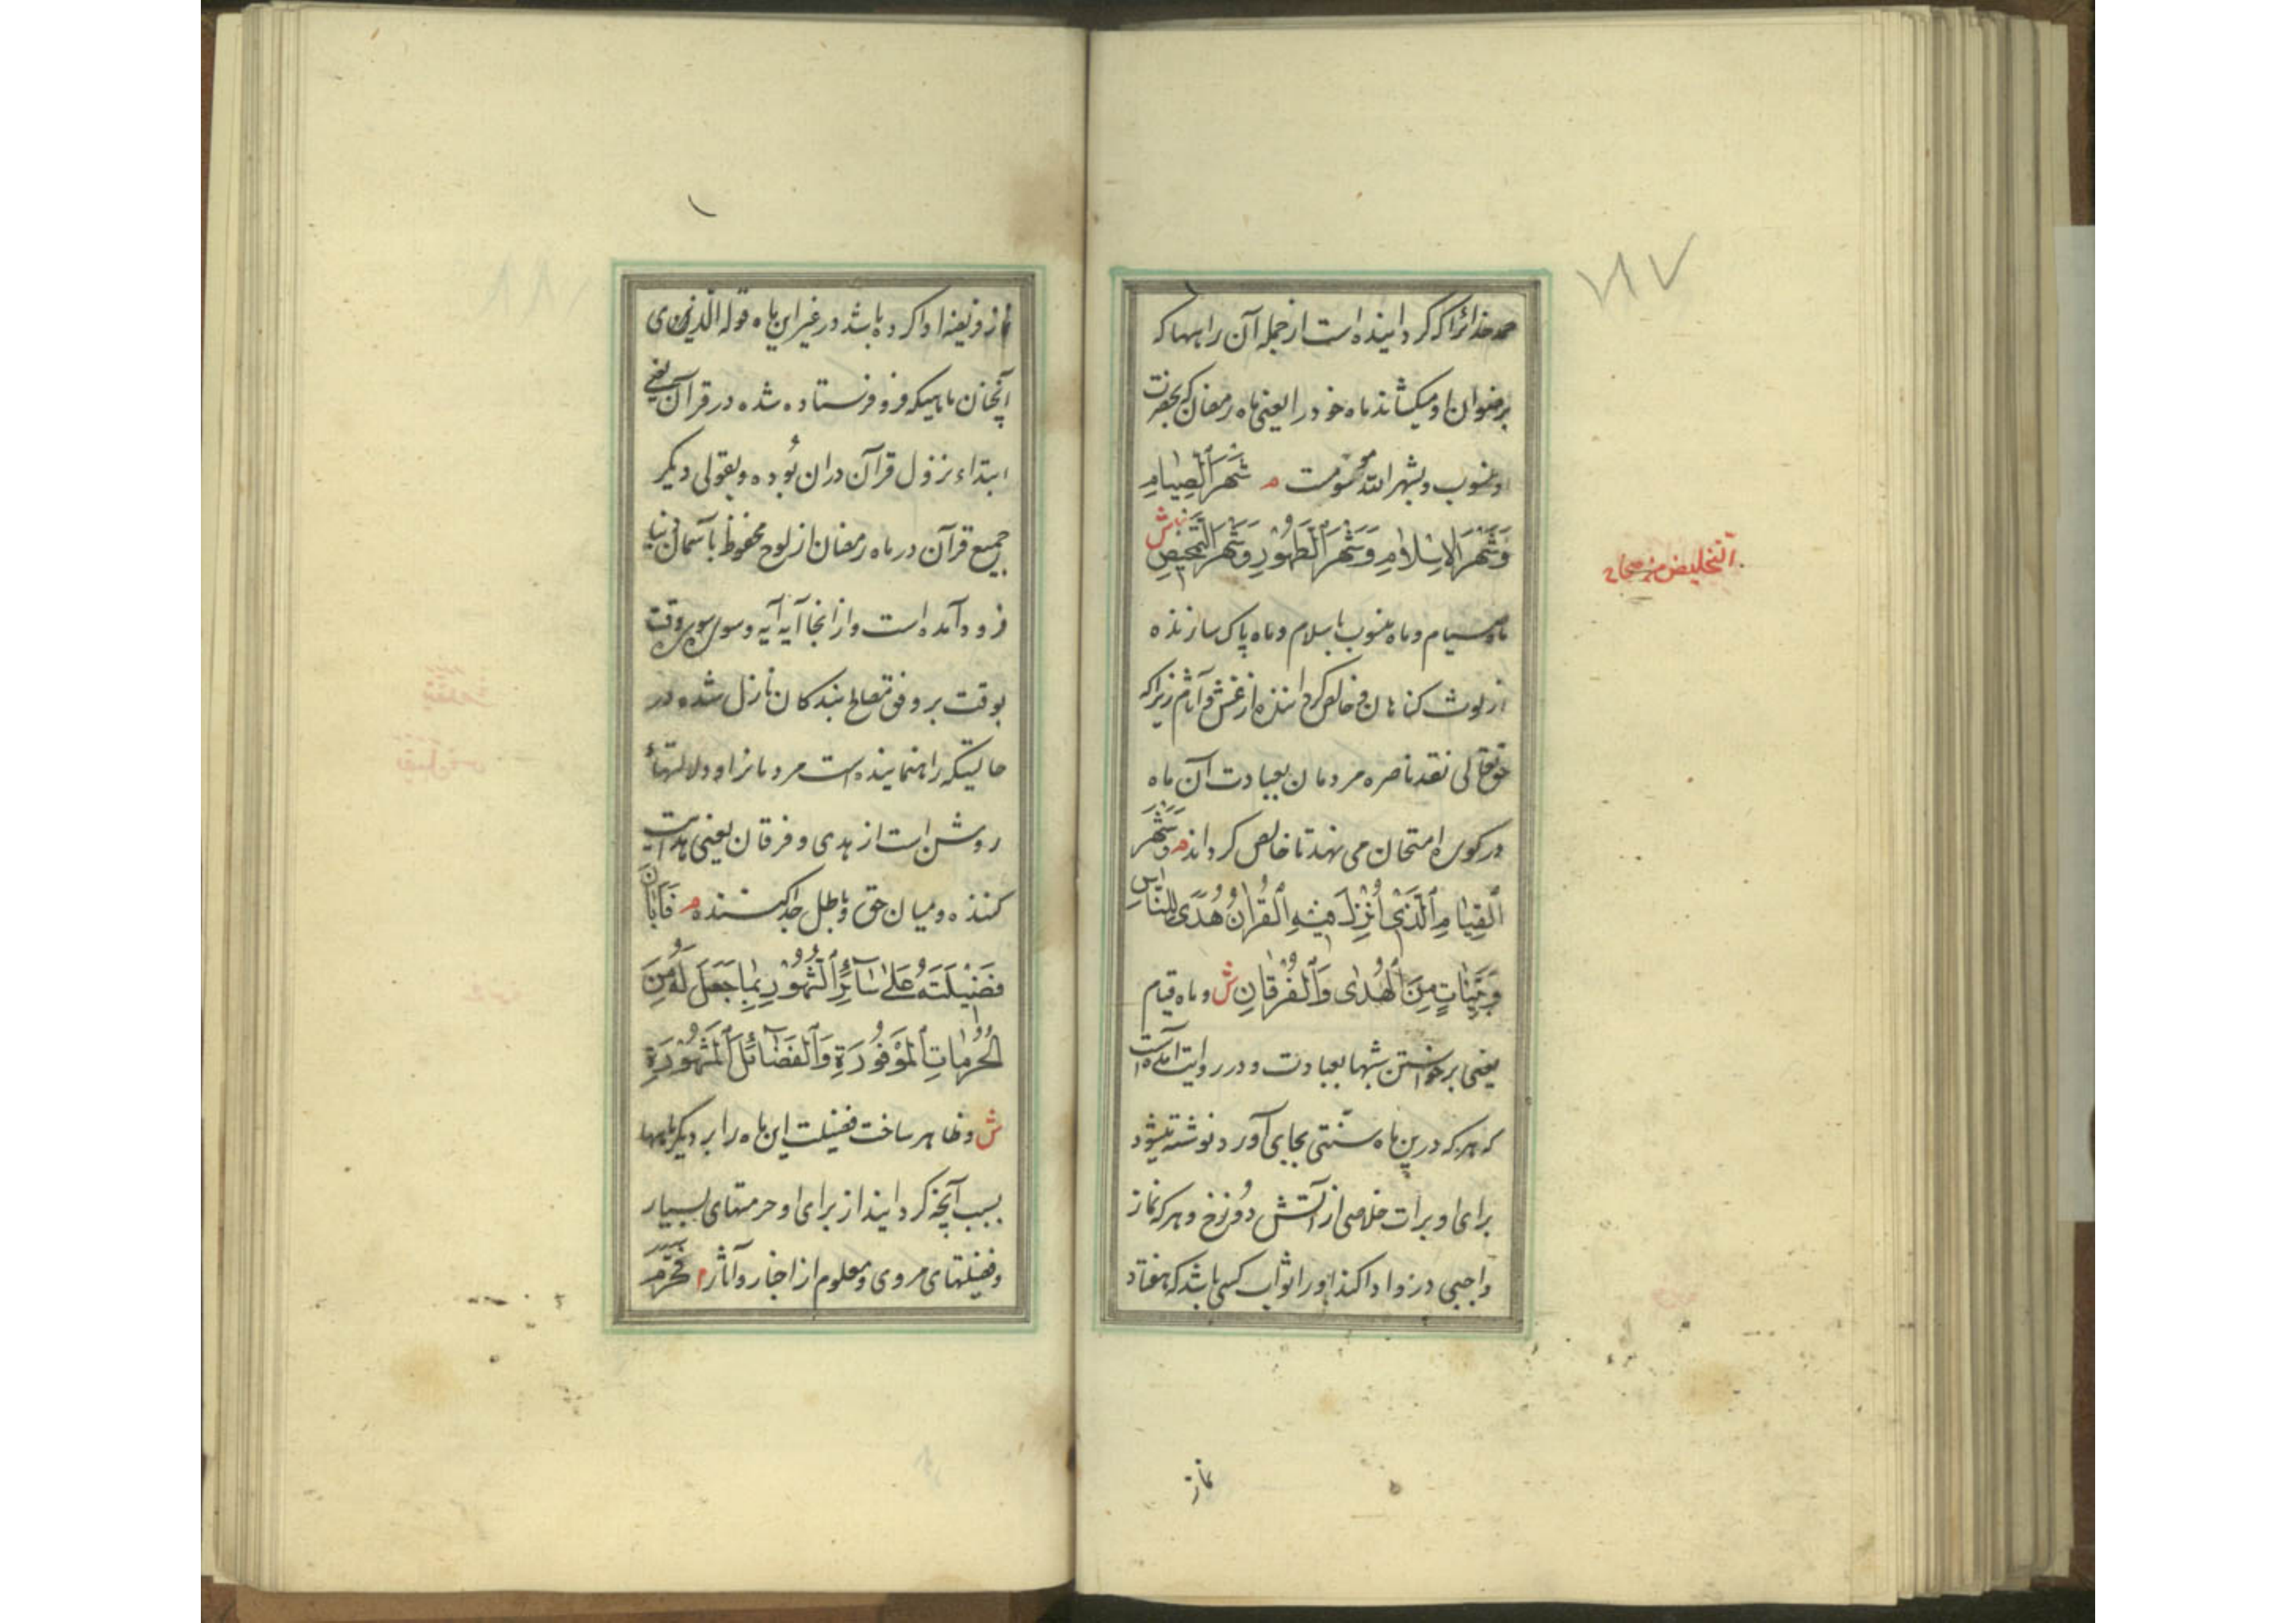 ۱۸۷
حمد خدائراکه کردانیده است از جمله آن راهها که
برضوان او میکشاند ماه خود را یعنی ماه رمضان که بحضرت
او منسوب و بشهر الله موسومست م شَهْرَ الصِّیٰامِ
وَشَهْرَ الاِسْلاٰمِ وَشَهْرَ الطَّهُورِ وَشَهْرَ التَّمْحِیصِ ش
التخلیص من صحاح
ماه صیام و ماه منسوب باسلام و ماه پاک سازنده
از لوث کناهان و خالص کرداننده از غش و آثام زیراکه
حقتعالی نقد ناصره مردمان بعبادت آن ماه
در کوره امتحان می نهد تا خالص کرداند م وَشَهْرَ
الْقِیٰامِ الَّذِی اُنْزِلَ فِیهِ الْقُرْاٰنُ هُدًی لِلنّٰاسِ
وَبَیِّنٰاتٍ مِنَ الْهُدٰی وَالْفُرْقٰانِ ش و ماه قیام
یعنی برخواستن شبها بعبادت و در روایت آمده است
که هر که درین ماه سنتی بجای آورد نوشته میشود
برای او برات خلاصی از آتش دوزخ و هر که نماز
واجبی درو ادا کند او را ثواب کسی باشد که هفتاد
نماز
نماز فریضه ادا کرده باشد در غیر این ماه قوله الذی
آنچنان ماهیکه فرو فرستاده شده در قرآن یعنی
ابتداء نزول قرآن دران بُوده و بقولی دیکر
جمیع قرآن در ماه رمضان از لوح محفوظ بآسمان دنیا
فرود آمده است و از آنجا آیه آیه و سوره سوره وقت
بوقت بر وفق مصالح بندکان نازل شده در
حالتیکه راهنماینده است مردمانرا و دلالتهاء
روشن است از هدی و فرقان یعنی هدایت
کننده و میان حق و باطل جدا کننده م فَاَبٰانَ
فَضِیلَتَهُ عَلیٰ سٰائِرِ الشُّهُورِ بِمٰا جَعَلَ لَهُ مِنَ
الْحُرُمٰاتِ الْمَوْفُورَةِ وَالْفَضٰائِلِ الْمَشْهُورَةِ
ش و ظاهر ساخت فضیلت این ماه را بر دیکر ماهها
بسبب آنچه کردانید از برای او حرمتهای بسیار
و فضیلتهای مروی و معلوم از اخبار و آثار م فَحَرَّمَ